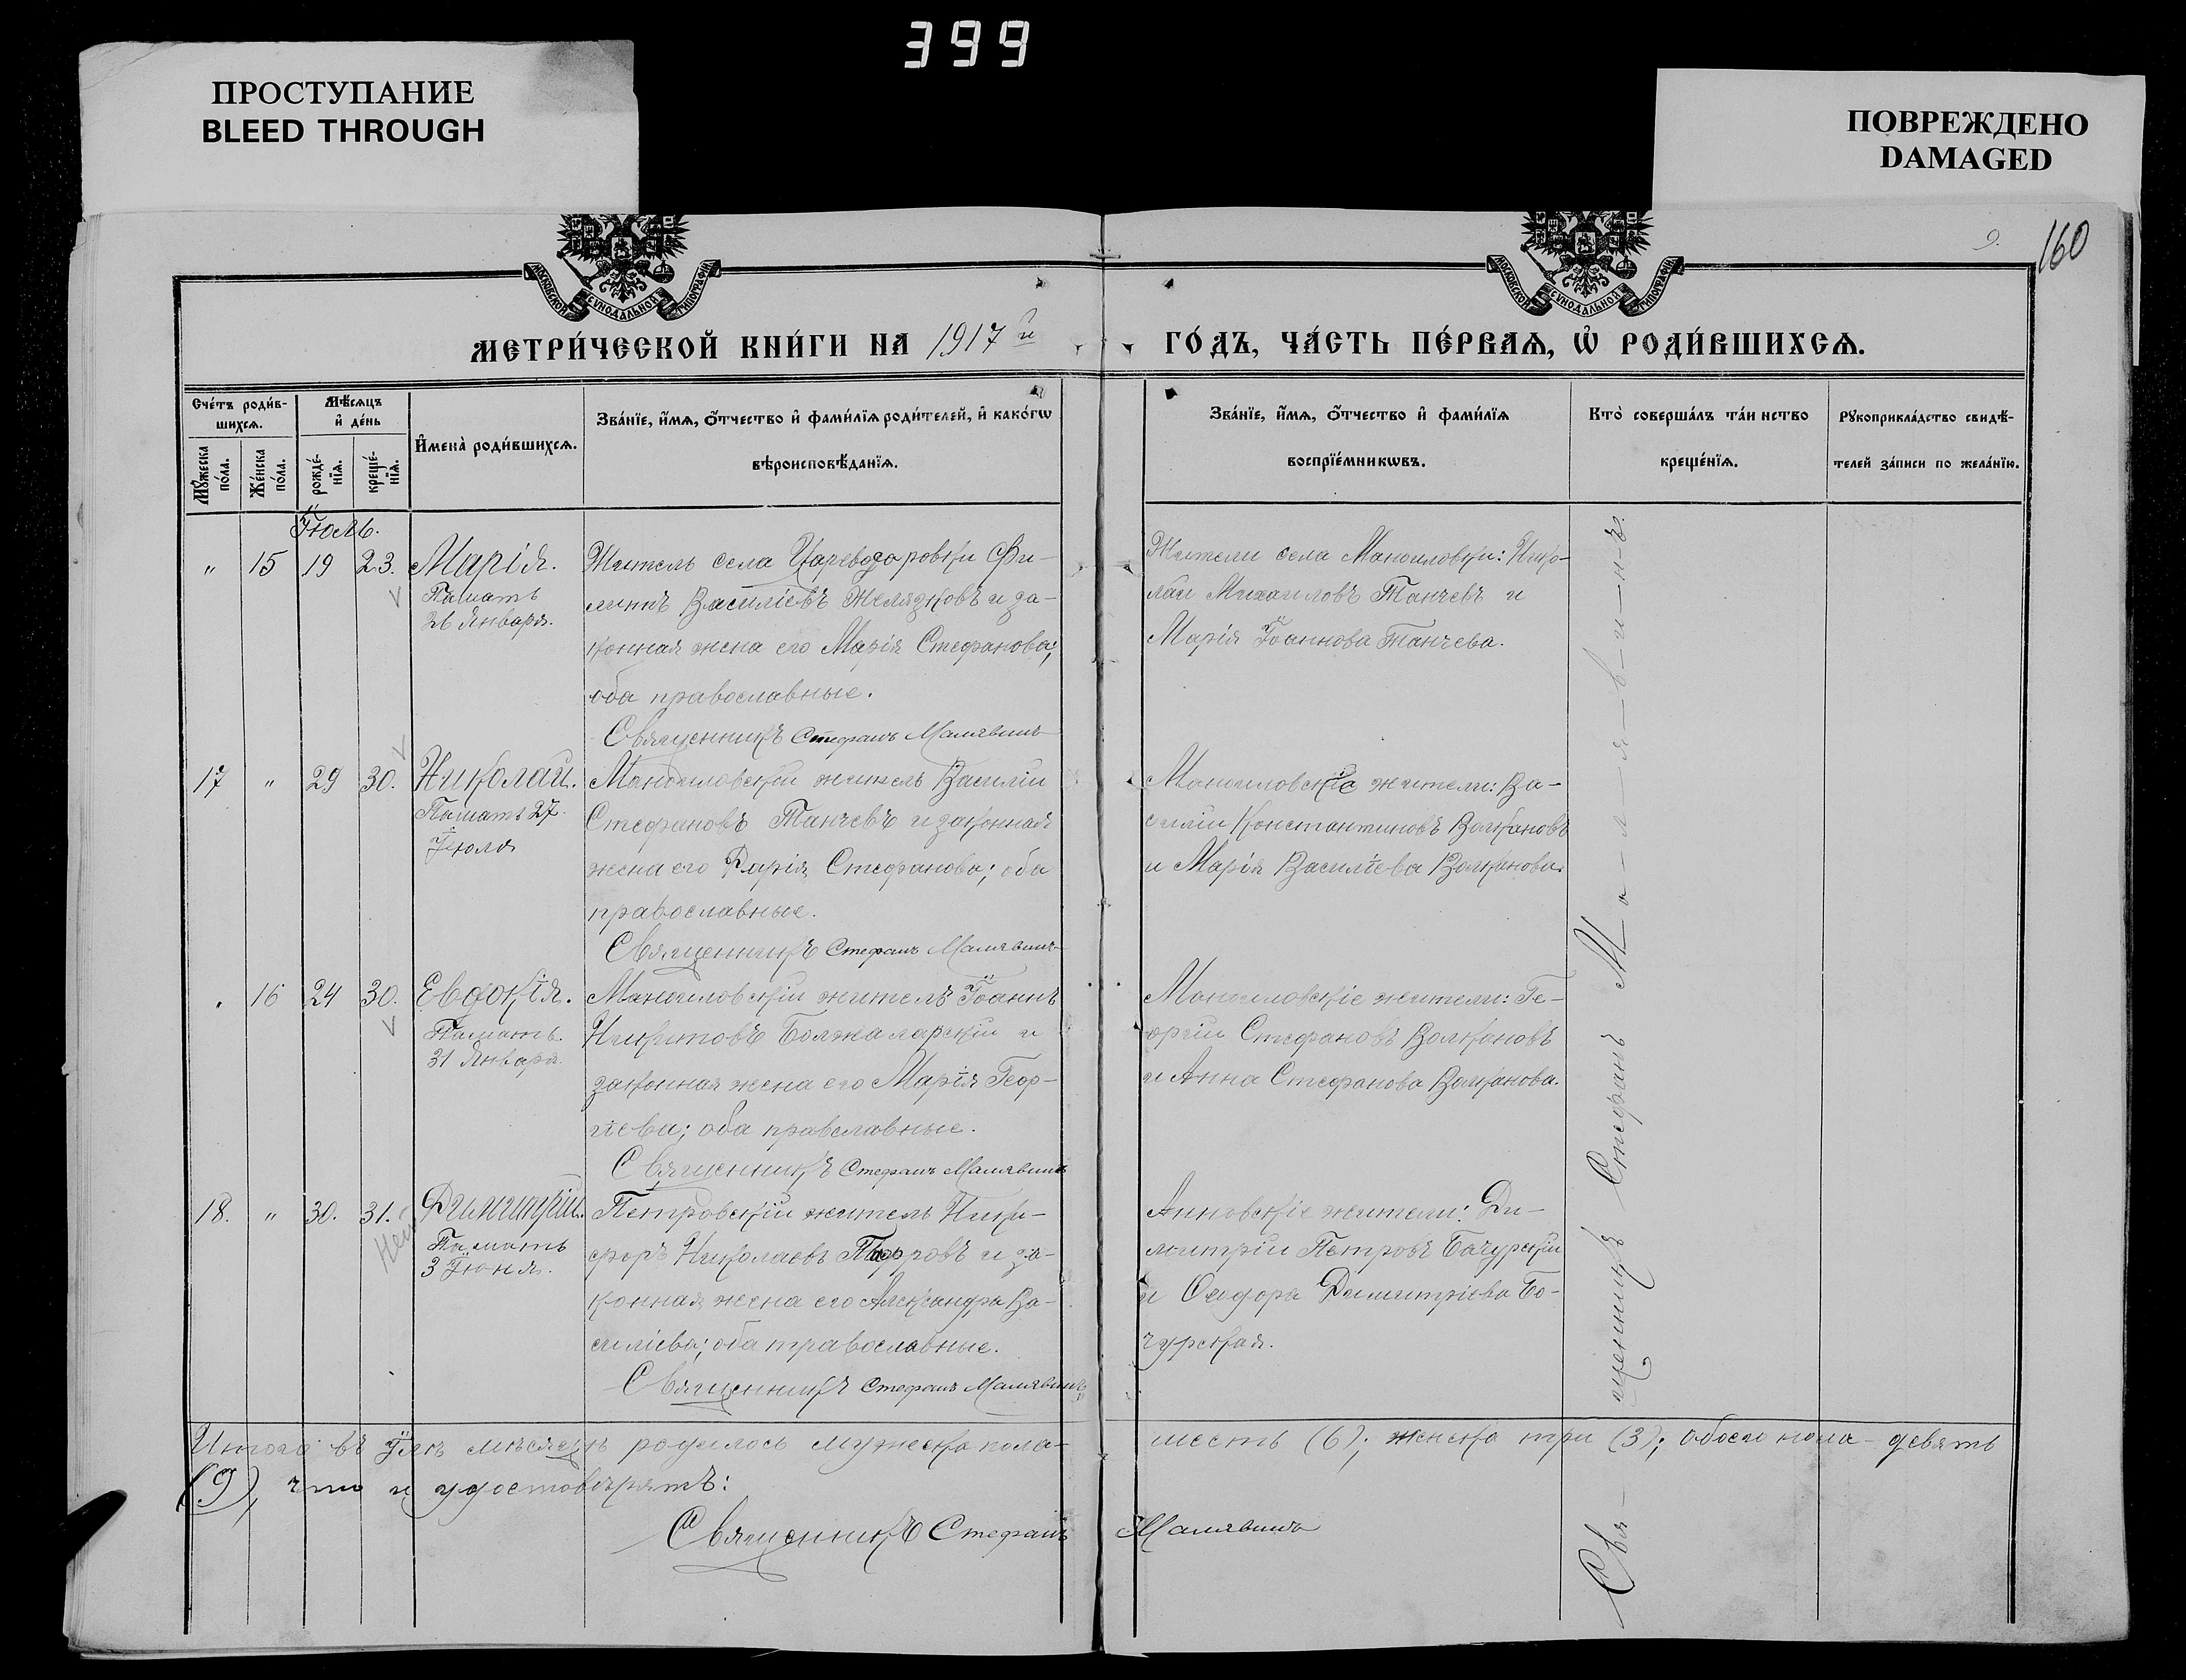 399
ПРОСТУПАНИЕ
BLEED THROUGH
ПОВРЕЖДЕНО
DAMAGED
9.
160
МОСКОВСКОЙ СѴНОДАЛЬНОЙ ТИПОГРАФІИ
МОСКОВСКОЙ СѴНОДАЛЬНОЙ ТИПОГРАФІИ
МЕТРИ́ЧЕСКОЙ КНИ́ГИ НА 1917й
ГО́ДЪ, ЧА́СТЬ ПЕ́РВАѦ, Ѡ҆ РОДИ́ВШИХСѦ.
Сче́тъ роди́в-
шихсѧ.
Мꙋ́жеска по́ла.
Же́нска по́ла.
Мѣ́сѧцъ
и҆ де́нь
рожде́-нїѧ.
креще́-нїѧ.
И҆мена̀ роди́вшихсѧ.
Зва́нїе, и҆́мѧ, ѻ҆́тчество и҆ фами́лїѧ роди́телей, и҆ како́гѡ
вѣроисповѣ́данїѧ.
Зва́нїе, и҆́мѧ, ѻ҆́тчество и҆ фами́лїѧ
воспрїе́мникѡвъ.
Кто̀ соверша́лъ та́инство
креще́нїѧ.
Рꙋкоприкла́дство свидѣ́-
телей за́писи по жела́нїю.
Іюль.
" 15 19 23. Марія.
Память
26 Января.
Житель села Царведаровки Фи-
липъ Василіевъ Желязковъ и за-
конная жена его Марія Стефанова;
оба православные.
Священникъ Стефанъ Малявинъ
Жители села Маноиловки: Нико-
лай Михаиловъ Танчевъ и
Марія Іоаннова Танчева.
17 " 29 30. Николай.
Память 27
Іюля
Маноиловскій житель Василій
Стефановъ Танчевъ и законная
жена его Дарія Стефанова; оба
православные.
Священникъ Стефанъ Малявинъ
Маноиловскіе жители: Ва-
силій Константиновъ Волкановъ
и Марія Василіева Волканова.
" 16 24 30. Евдокія.
Память
31 Января.
Маноиловскій житель Іоаннъ
Никитовъ Болжаларскій и
законная жена его Марія Геор-
гіева; оба православные.
Священникъ Стефанъ Малявинъ
Маноиловскіе жители: Ге-
оргій Стефановъ Волкановъ
и Анна Стефанова Волканова.
18. " 30. 31. Димитрій.
Память
3 Іюня.
Петровскій житель Ники-
форъ Николаевъ и за-
конная жена его Александра Ва-
силіева; оба православные.
Священникъ Стефанъ Малявинъ
Анновскіе жители: Ди-
митрій Петровъ Бочурскій
и Феодора Димитріева Бо-
чурская.
Свя-щенникъ Стефанъ М-а-л-я-в-и-н-ъ.
Итого въ Іюлѣ мѣсяцѣ родилось мужеска пола- шесть (6); женска три (3); обоего пола- девять
(9), что и удостовѣряетъ:
Священникъ Стефанъ Малявинъ